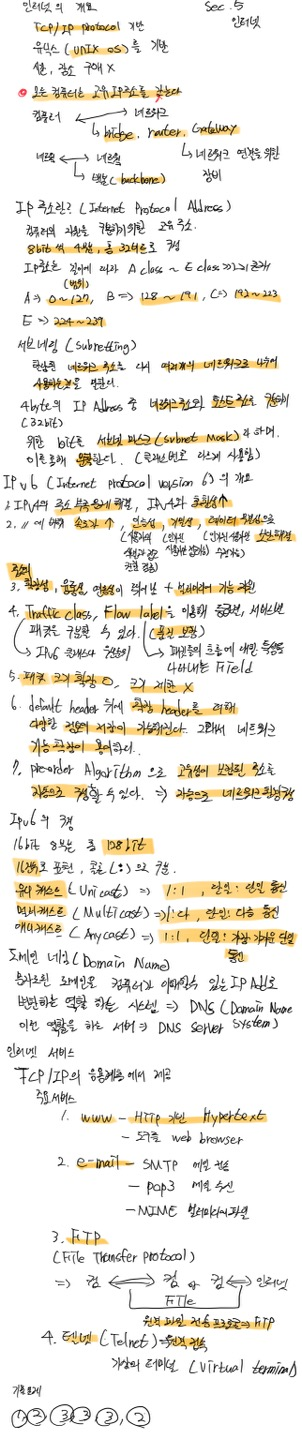 인터넷의 개요
Sec.5
인터넷
TCP/IP protocol 기반
유닉스 (UNIX OS)를 기반
모든 컴퓨터는 고유 IP주소를 갖는다
컴퓨터 ↔ 네트워크
↳ bridge, router, Gateway
네트워크 연결을 위한
장비
↳ 백본 (backbone)
IP 주소란? (Internet Protocol Address)
컴퓨터의 자원을 구분하기위한 고유 주소.
8bit씩 4부분, 총 32비트로 구성
IP주소는 길이에 따라 A class ~ E class
A ⇒ 0~127, B ⇒ 128~191, C ⇒ 192~223
E ⇒ 224~239
서브네팅 (Subnetting)
4byte의 IP Address 중 네트워크 주소와 호스트 주소를
(32bit)
위한 bit를 서브넷 마스크 (Subnet Mask)라 하며,
이를 통해
IPv6 (Internet protocol version 6)의 개요
1. IPv4의 주소 부족 문제 해결, IPv4와 호환성↑
2. 〃에 비해 속도가↑,
3. 확장성, 융통성, 연동성이 뛰어남 + 멀티미디어 기능 지원
4. Traffic class, Flow label을 이용해 등급별, 서비스별
패킷을 구분할 수 있다. (품질 보장)
패킷들의 흐름에 대한 특성을
나타내는 Field
5. 패킷 크기 확장 O, 크기 제한 X
6. default header 뒤에 확장 header를 더해
다양한 정보의 저장이 가능해진다. 그래서 네트워크
기능 확장이 용이하다.
7. pre-order Algorithm으로 고유성이 보장된 주소를
자동으로 구성할 수 있다. ⇒ 자동으로 네트워크 환경구성
IPv6의 구성
16bit 8부분 총 128bit
16진수로 표현, 콜론(:)으로 구분.
유니캐스트 (Unicast) ⇒ 1:1, 단일:단일 통신
멀티캐스트 (Multicast) ⇒ 1:다, 단일:다중 통신
애니캐스트 (Anycast) ⇒ 1:1, 단일:가장 가까운 단일
통신
도메인 네임 (Domain Name)
문자로된 도메인을 컴퓨터가 이해할수 있는 IP Add로
변환하는 역할 하는 시스템 ⇒ DNS (Domain Name
System)
이런 역할을 하는 서버 ⇒ DNS Server
인터넷 서비스
TCP/IP의 응용계층에서 제공
주요서비스
1. www - HTTP 기반 Hypertext
- 도구를 web browser
2. e-mail - SMTP 메일 전송
- POP3 메일 수신
- MIME 멀티미디어 파일
3. FTP
(File Transfer Protocol)
⇒ 컴 ↔ 컴 or 컴 ↔ 인터넷
File
원격 파일 전송 프로토콜 ⇒ FTP
4. 텔넷 (Telnet) = 원격 접속
가상의 터미널 (Virtual terminal)
기출문제
① ② ③ ③ ③, ②